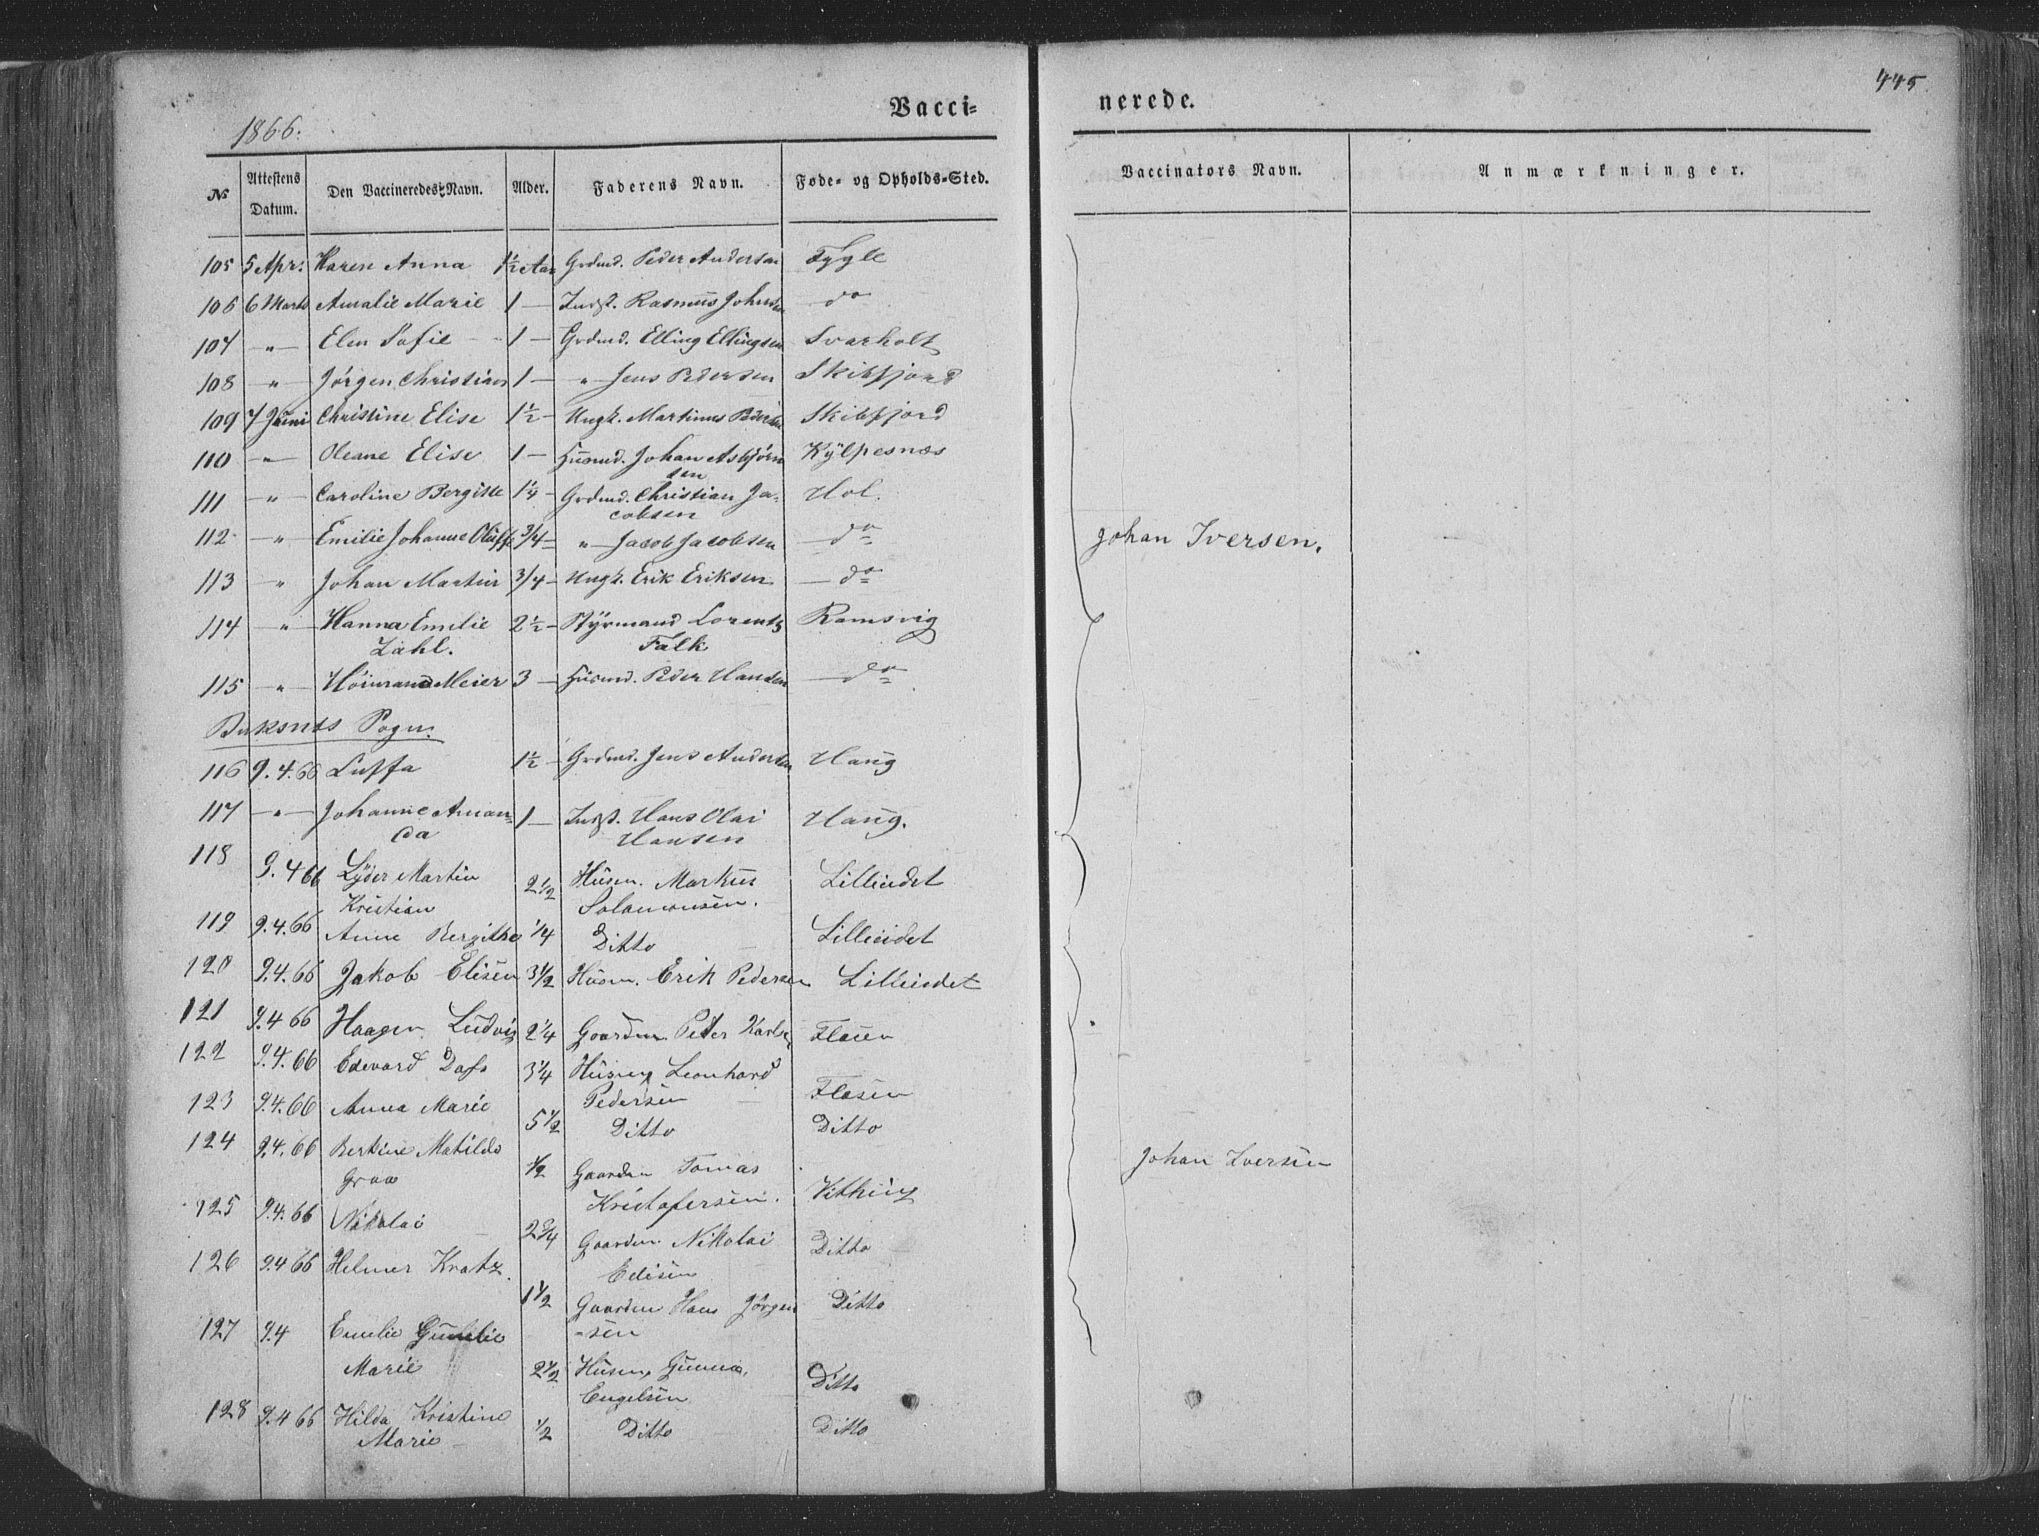 445
Vacci=
nerede.
1866.
No Attestens Datum. Den Vaccineredes Navn. Alder. Faderens Navn. Føde- og Opholds-Sted.
Vaccinators Navn. Anmærkninger.
105 5 Apr: Karen Anna 1½ Aar Grdmd. Peder Andersen Fygle
106 6 Marts Amalie Marie 1 — Indst. Rasmus Johnsen do
107 — " — Elen Sofie 1 — Grdmd. Elling Ellingsen Svarholt
108 — " — Jørgen Christian 1 — " — Jens Pedersen Skibfjord
109 7 Juni Christine Elise 1½ — Ungk. Martinus Skibfjord
110 — " — Oleane Elise 1 — Husmd. Johan Asbjørn Kylpesnæs
sen
111 — " — Caroline Bergitte 1¼ — Grdmd. Christian Ja- Hol.
cobsen
112 — " Emilie Johanne 3/4 — " — Jacob Jacobsen — do
Johan Iversen.
113 — " Johan Martin 3/4 — Ungk. Erik Eriksen — do
114 — " Hanna Emilie 2½ — Styrmand Lorents Ramsvig
Zahl. Falk
115 — " — Meier 3 — Husmd. Peder Hansen — do
Buksnæs Sogn.
116 9.4.66 Luffa 1½ Grdmd. Jens Andersen Haug
117 — " — Johanne Aman- 1 — Indst. Hans Olai Haug.
da Hansen
118 9.4 66 Lyder Martin 2 1/2 Husm. Markus Lilleidet
Kristian Salamonsen.
119 9.4.66 Anne Bergithe 1/4 Ditto Lilleidet
120 9.4.66 Jakob Elisen 3 1/2 Husm. Erik Pedersen Lilleidet
121 9.4 66 Haagen Ludvig 2 1/4 Gaardm Peter Karls Flasen
122 9.4.66 Edevard 3 1/4 Husm Leonhard
Pedersen Flasen
123 9.4.66 Anna Marie 5 1/2 Ditto Ditto
124 9.4.66 Bertine Matilde 1/2 Gaardm Tomas
Graa Kristofersen.
Johan Iversen
125 9.4.66 Nikolai 2 3/4 Gaardm. Nikolai Ditto
Edisen
126 9.4 66 Helmer Kratz. 1 1/2 Gaardm Hans Jørgen Ditto
-sen
127 9.4 Emelie
Marie 2 1/2 Husm Ditto
Engelsen
128 9.4 66 Hilda Kristine 1/2 Ditto Ditto
Marie